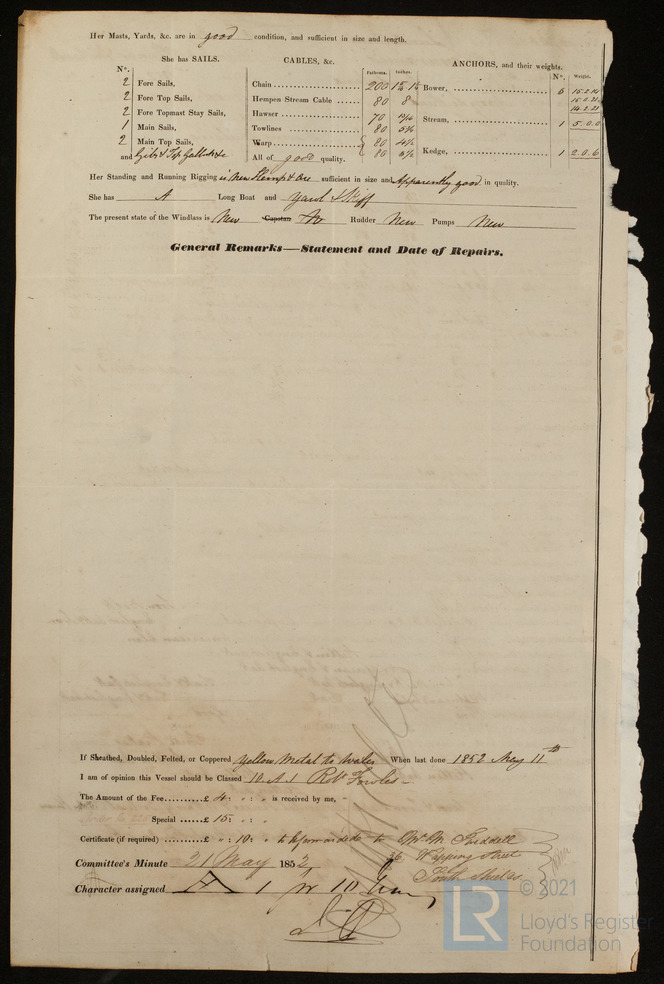 Her Masts, Yards, &c. are in good condition, and sufficient in size and length.
She has SAILS.
CABLES, &c.
ANCHORS, and their weights.
N°.
Fathoms.
Inches.
N°.
Weight.
2 Fore Sails,
2 Fore Top Sails,
2 Fore Topmast Stay Sails,
1 Main Sails,
2 Main Top Sails,
and
Chain 200
Hempen Stream Cable 80 8
Hawser 70
Towlines 80
Warp 80
80
All of good quality.
Bower,
15.0.21
14.2.21
Stream, 1 5.0.0
Kedge, 1 2.0.6
Her Standing and Running Rigging is New Hemp & are sufficient in size and Apparently good in quality.
She has A Long Boat and Yawl & Skiff
The present state of the Windlass is New Capstan Rudder New Pumps New
General Remarks—Statement and Date of Repairs.
If Sheathed, Doubled, Felted, or Coppered Yellow Metal to Wales When last done 1852 May 11th
I am of opinion this Vessel should be Classed 10 A 1 Robt Fowles
The Amount of the Fee £ 4 : " : " is received by me,
Special £ 15 : " : "
Certificate (if required) £ " : 10 : " to to
Wapping Street
South Shields
Committee's Minute 21 May 1852
Character assigned A 1 for 10 Years
© 2021
LR
Lloyd's Register
Foundation